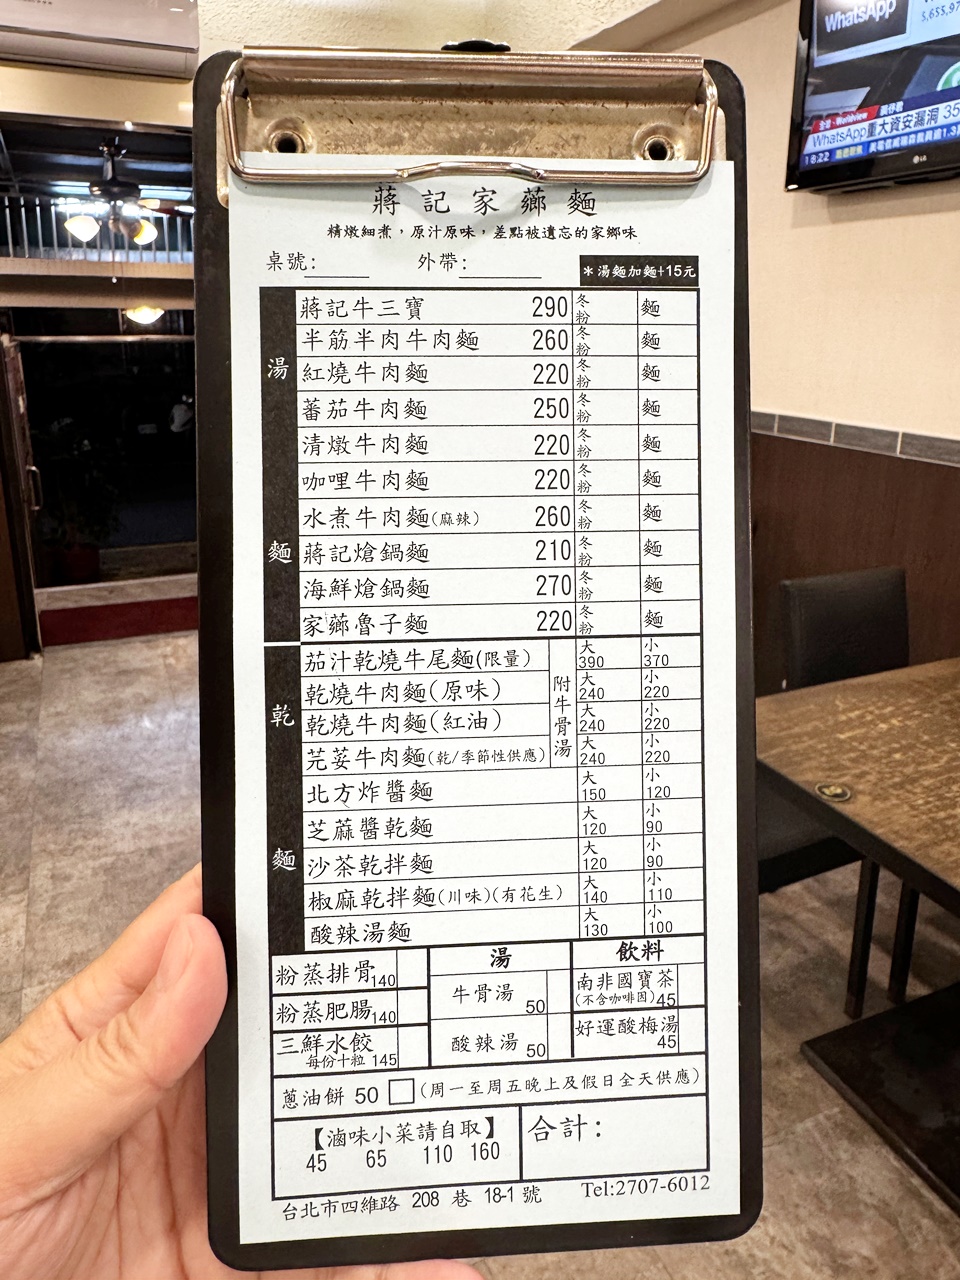 WhatsApp
5,655,97
全球·Worldview
WhatsApp重大資安漏洞 35
18:22
LG
蔣記家薌麵
精燉細煮，原汁原味，差點被遺忘的家鄉味
桌號：
外帶：
＊湯麵加麵+15元
湯麵
蔣記牛三寶 290 冬粉 麵
半筋半肉牛肉麵 260 冬粉 麵
紅燒牛肉麵 220 冬粉 麵
蕃茄牛肉麵 250 冬粉 麵
清燉牛肉麵 220 冬粉 麵
咖哩牛肉麵 220 冬粉 麵
水煮牛肉麵(麻辣) 260 冬粉 麵
蔣記熗鍋麵 210 冬粉 麵
海鮮熗鍋麵 270 冬粉 麵
家薌魯子麵 220 冬粉 麵
乾麵
茄汁乾燒牛尾麵(限量) 大390 小370
乾燒牛肉麵(原味) 大240 小220
乾燒牛肉麵(紅油) 大240 小220
芫荽牛肉麵(乾/季節性供應) 大240 小220
附牛骨湯
北方炸醬麵 大150 小120
芝蔴醬乾麵 大120 小90
沙茶乾拌麵 大120 小90
椒麻乾拌麵(川味)(有花生) 大140 小110
酸辣湯麵 大130 小100
粉蒸排骨140
粉蒸肥腸140
三鮮水餃
每份十粒 145
湯
牛骨湯 50
酸辣湯 50
飲料
南非國寶茶
(不含咖啡因)45
好運酸梅湯
45
蔥油餅 50 □ (周一至周五晚上及假日全天供應)
【滷味小菜請自取】
45 65 110 160
合計：
台北市四維路 208 巷 18-1 號
Tel:2707-6012